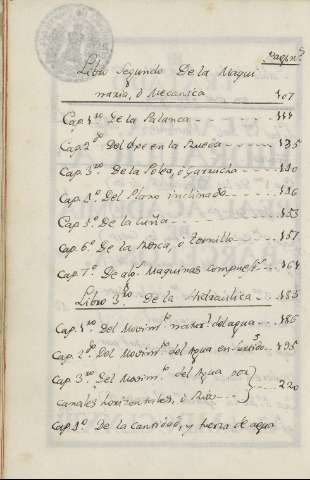 Pagin.s
Libro Segundo De la Maqui
naria, ó Mecanica 107
Cap. 1.ro De la Palanca - - - 114
Cap. 2.do Del Exe en la Rueda - - - 135
Cap. 3.ro De la Polea, ó Garrucha - - - 140
Cap. 4.o Del Plano inclinado - - - 146
Cap. 5.o De la Cuña - - - 153
Cap. 6.o De la Rosca, ó tornillo - - - 157
Cap. 7.o De alg.s Maquinas compuest.s - 164
Libro 3.ro De la Hidraulica - - 183
Cap. 1.ro Del Movim.to natur.l del agua - - 186
Cap. 2.do Del Movim.to del Agua en 195
Cap. 3.ro Del Movim.to del Agua por
Canales horizontales, ó Rios - - 220
Cap. 4.o De la Cantidad, y fuerza de agua